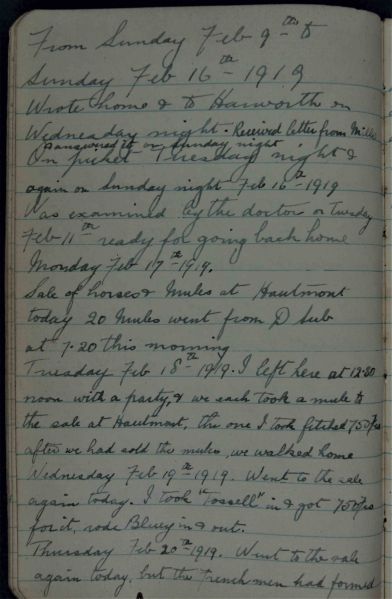 From Sunday Feb 9th to
Sunday Feb 16th - 1919
Wrote home & to Harworth on
Wednesday night. Received letter from Millie
& answered it on Sunday night
On picket Tuesday night &
again on Sunday night Feb 16th 1919
Was examined by the doctor on Tuesday
Feb 11th ready for going back home
Monday Feb 17th 1919.
Sale of horses & Mules at Hautmont
today 20 Mules went from D Sub
at 7.20 this morning
Tuesday Feb 18th 1919. I left here at 12.30
noon with a party, & we each took a mule to
the sale at Hautmont, the one I took fetched 750 frs
after we had sold the mules, we walked home
Wednesday Feb 19th 1919. Went to the sale
again today. I took "Tossell" in & got 750 frs
for it, rode Bluey in & out.
Thursday Feb 20th 1919. Went to the sale
again today, but the french men had formed